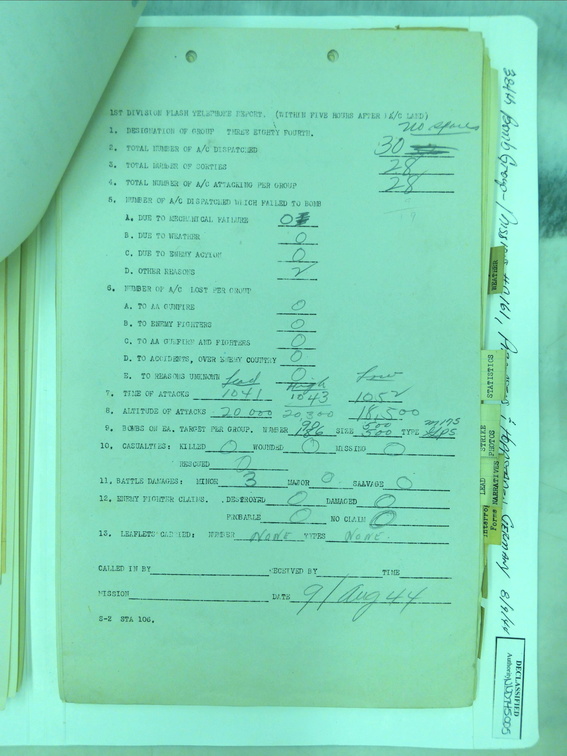 1ST DIVISION FLASH TELEPHONE REPORT. (WITHIN FIVE HOURS AFTER A/C LAND)
no spares
1. DESIGNATION OF GROUP THREE EIGHTY FOURTH.
2. TOTAL NUMBER OF A/C DISPATCHED 30
3. TOTAL NUMBER OF SORTIES 28
4. TOTAL NUMBER OF A/C ATTACKING PER GROUP 28
5. NUMBER OF A/C DISPATCHED WHICH FAILED TO BOMB
A. DUE TO MECHANICAL FAILURE 0
B. DUE TO WEATHER 0
C. DUE TO ENEMY ACTION 0
D. OTHER REASONS 2
6. NUMBER OF A/C LOST PER GROUP
A. TO AA GUNFIRE 0
B. TO ENEMY FIGHTERS 0
C. TO AA GUNFIRE AND FIGHTERS 0
D. TO ACCIDENTS, OVER ENEMY COUNTRY 0
E. TO REASONS UNKNOWN 0
Lead High Low
7. TIME OF ATTACKS 1041 1043 1052
8. ALTITUDE OF ATTACKS 20,000 20,300 18,500
9. BOMBS ON EA. TARGET PER GROUP. NUMBER SIZE 500 TYPE
10. CASUALTIES: KILLED 0 WOUNDED 0 MISSING 0
RESCUED 0
11. BATTLE DAMAGES: MINOR 3 MAJOR 0 SALVAGE 0
12. ENEMY FIGHTER CLAIMS. DESTROYED 0 DAMAGED 0
PROBABLE 0 NO CLAIM 0
13. LEAFLETS CARRIED: NUMBER NONE TYPES NONE
CALLED IN BY RECEIVED BY TIME
MISSION DATE 9/Aug 44
S-Z STA 106.
384th Bomb Group - Mission GERMANY 8/9/44
WEATHER
STATISTICS
STRIKE PHOTOS
LEAD NARRATIVES
Interro Forms
DECLASSIFIED
Authority NND745005